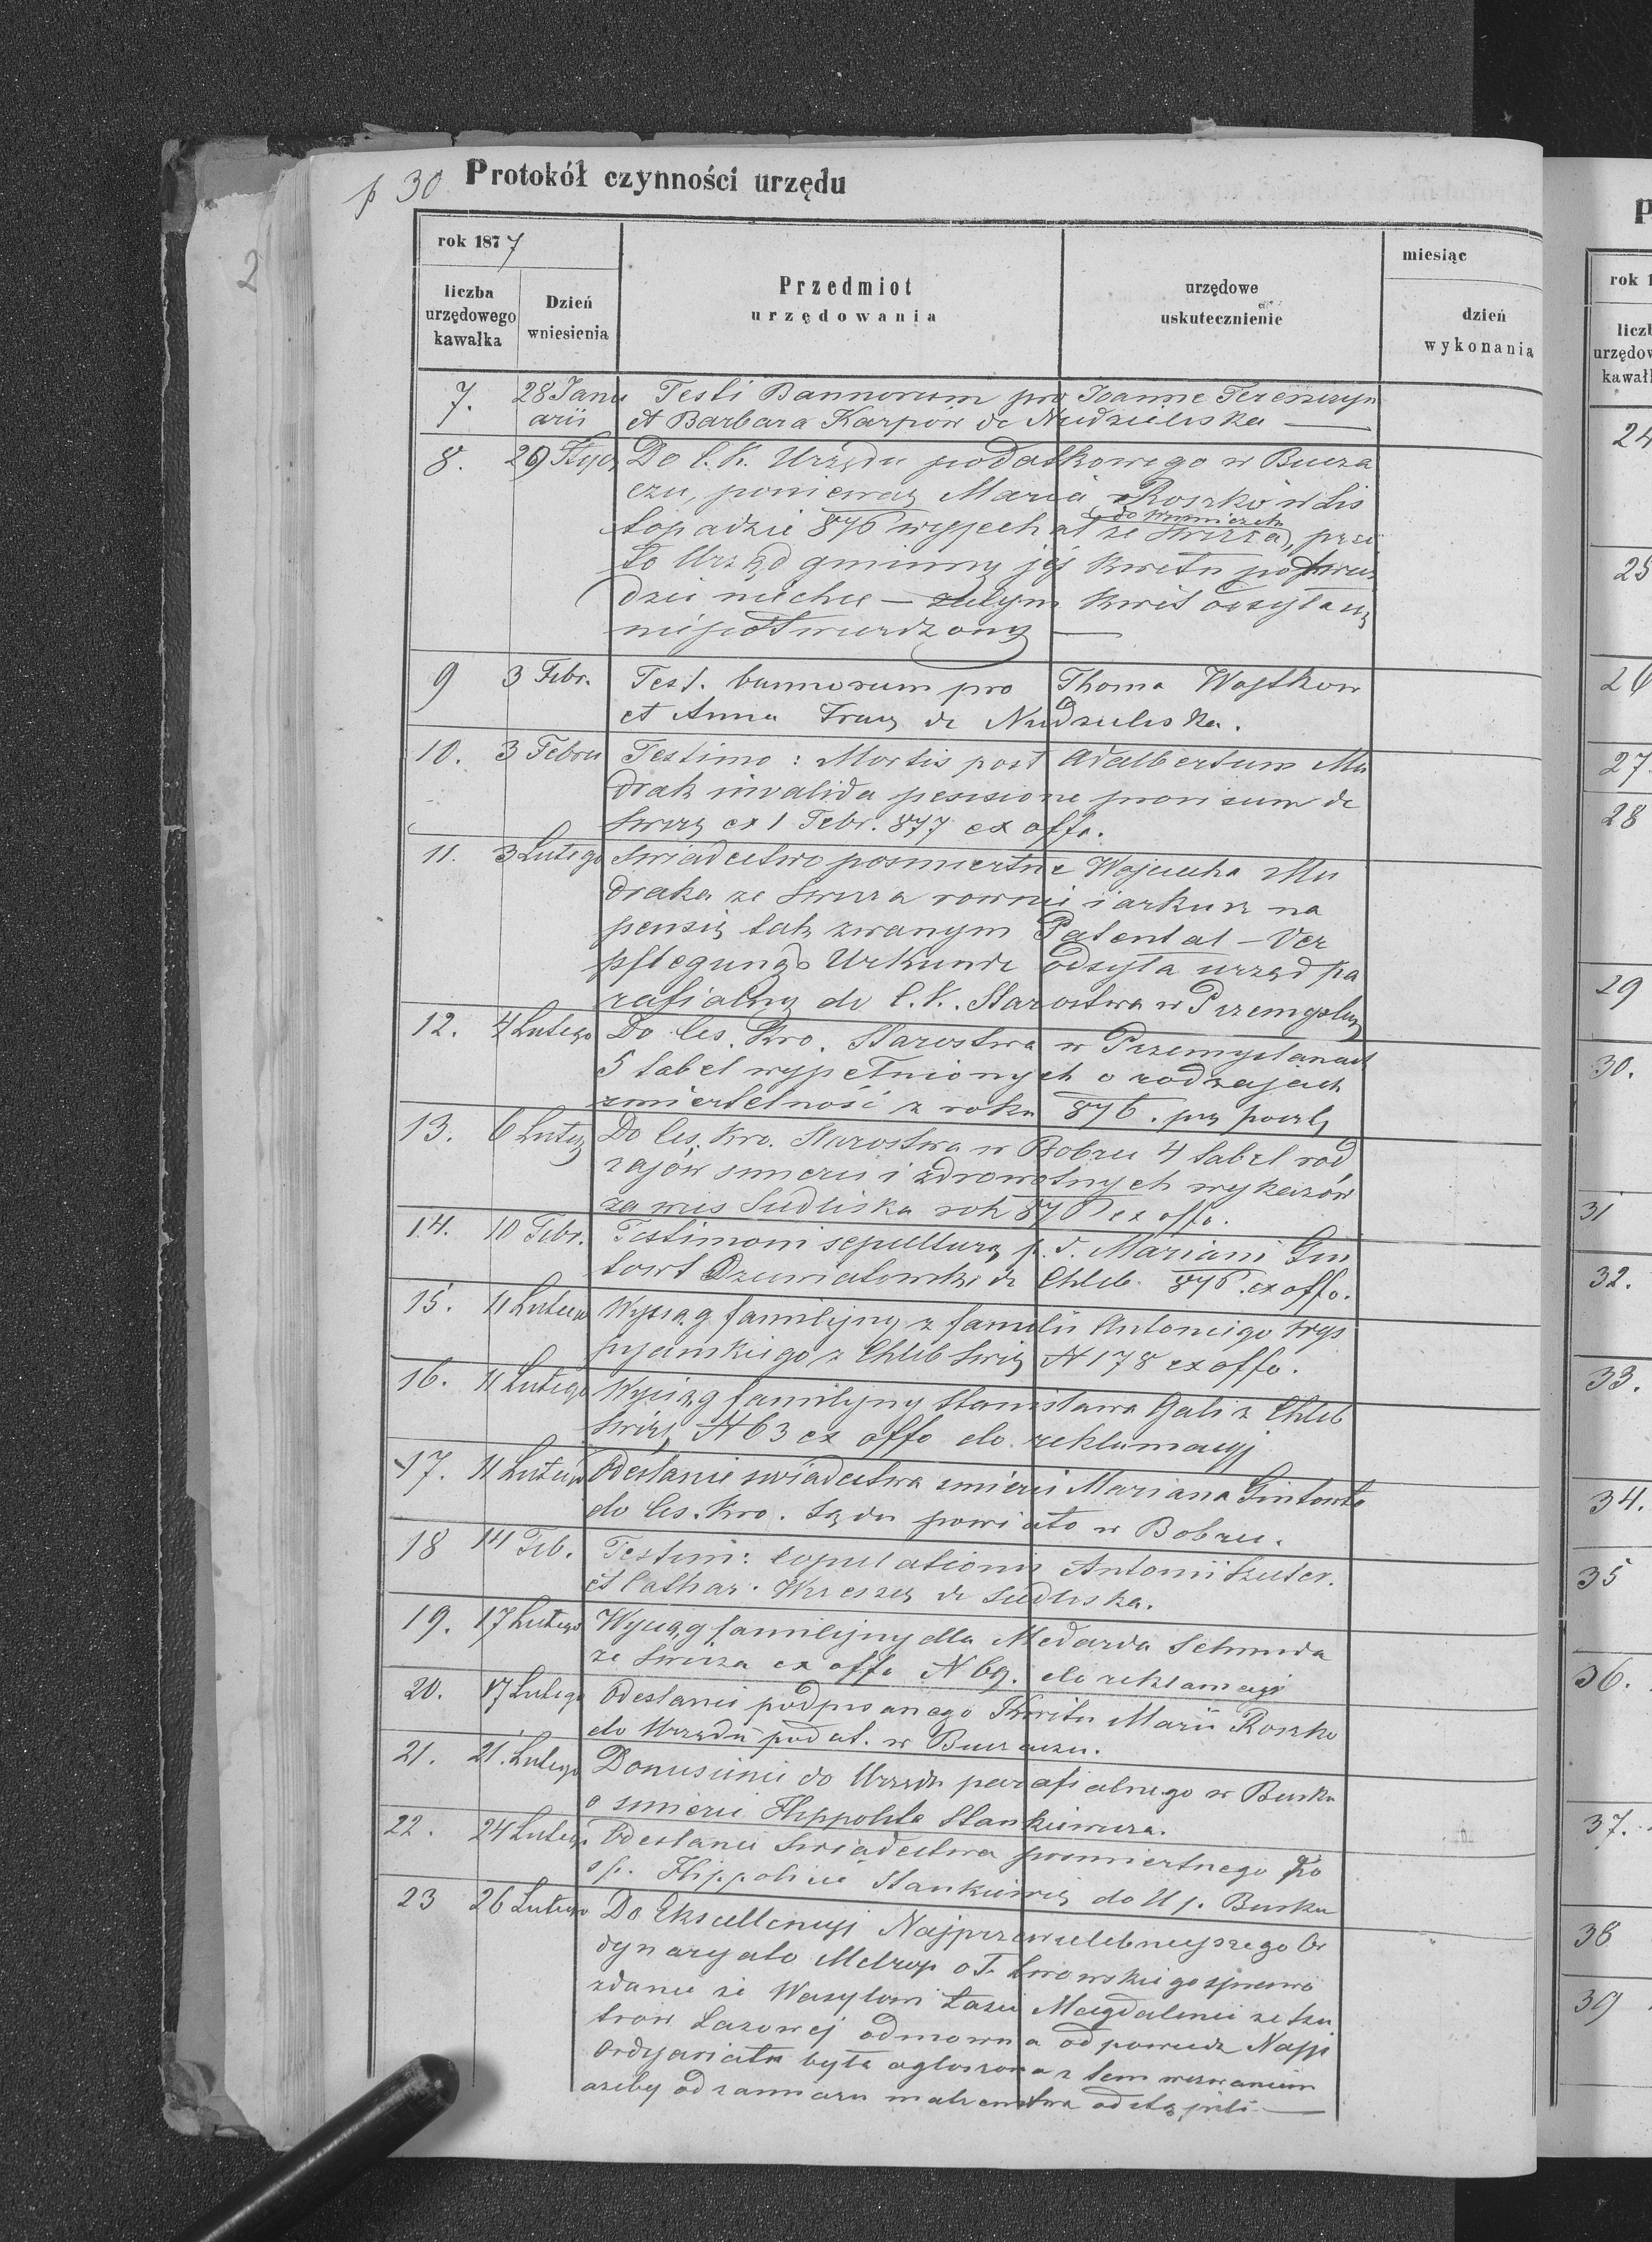 p 30 Protokół czynności urzędu
rok 1877
liczba urzędowego kawałka
Dzień wniesienia
Przedmiot urzędowania
urzędowe uskutecznienie
miesiąc
dzień wykonania
7. 28 Janu Testi Bannorum pro Joanne Terenczyn
arii et Barbara Karpów de Niedzieliska —
8. 29 Stycz Do C. K. Urzędu podatkowego w Bucza
czu, ponieważ Maria Roszko w Lis
topadzie 876 wyjechał ze Swirża, prze
to Urząd gminny jej kwitu potwier
dzić niechce — zatym kwit odsyła się
niepotwierdzony —
9 3 Febr. Test. bannorum pro Thoma Wojtkow
et Anna Fraug de Niedzieliska.
10. 3 Febru Testimo: Mortis post Adalbertum Mu
drak invalida pensione provisum de
Swirz ex 1 Febr. 877 ex offo.
11. 3 Lutego Swiadectwo posmiertne Wojciecha Mu
draka ze Swirza rownie i arkusz na
pensię tak zwanym Patental-Ver
pflegungs Urkunde odsyła urząd pa
rafialny do C. K. Starostwa w Przemyslan
12. 4 Lutego Do Ces. Kro. Starostwa w Przemyslanach
5 tabel wypełnionych o rodzajach
smiertelność z roku 876. prz pocztę
13. 6 Luteg Do Ces. Kro. Starostwa w Bobrce 4 tabel rod
zajów smierci i zdrowotnych wykazów
za wies Siedliska rok 876 ex offo.
14. 10 Febr. Testimoni sepulturæ p. d. Mariani Gin
towt Dziewiatowski de Chleb. 876. ex offo.
15. 11 Lutego Wyciąg familijny z familii Antoniego Krys
pyanskiego z Chleb Swirz N 178 ex offo.
16. 11 Lutego Wyciąg familijny Stanisława Gali z Chleb
Swirz N 63 ex offo do reklamacyj
17. 11 Lutego Odesłanie swiadectwa smierci Mariana Gintowta
do Ces. Kro. Sądu powiato w Bobrce.
18 14 Feb. Testim: Copulationis Antonii Szuter.
et Cathar. Wreszcz de Siedliska.
19. 17 Lutego Wyciąg familijny dla Medarda Schmida
ze Swirza ex offo N 69. do reklamacyi
20. 17 Lutego Odesłanie podpisanego Kwitu Marii Roszko
do Urzędu podat. w Buczaczu.
21. 21. Lutego Doniesienie do Urzędu parafialnego w Busku
o smierci Hippolita Stankiewicza.
22. 24 Lutego Odesłanie Swiadectwa posmiertnego po
sp. Hippolicie Stankiewicz do U p. Busku
23 26 Lutego Do Ekscellencyi Najprzewielebniejszego Or
dynaryato Metrop o. ł. Lwowskiego sprawo
zdanie że Wasylowi Łasii Magdalenie ze
Lazowej odmowna odpowiedz Najp
Ordyariatu była ogłoszona z tem wezwaniem
azeby od zamiaru małzenstwa odstąpili —
24
25
27
28
29
30.
31
32.
33.
34.
35
36.
37.
38
39